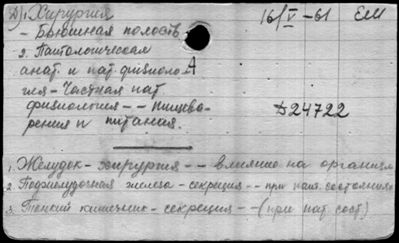 Д/1. Хирургия 16/V-61 ЕМ
- Брюшная полость
2. Патологическая
анат. и пат. физиоло А
гия - Частная пат.
физиология - - пищева-
рения и питания. Д24722
1. Желудок - хирургия - - влияние на организм
2. Поджелудочная железа - секреция - - при пат. состояниях
3. Тонкий кишечник - секреция - - (при пат. сост.)